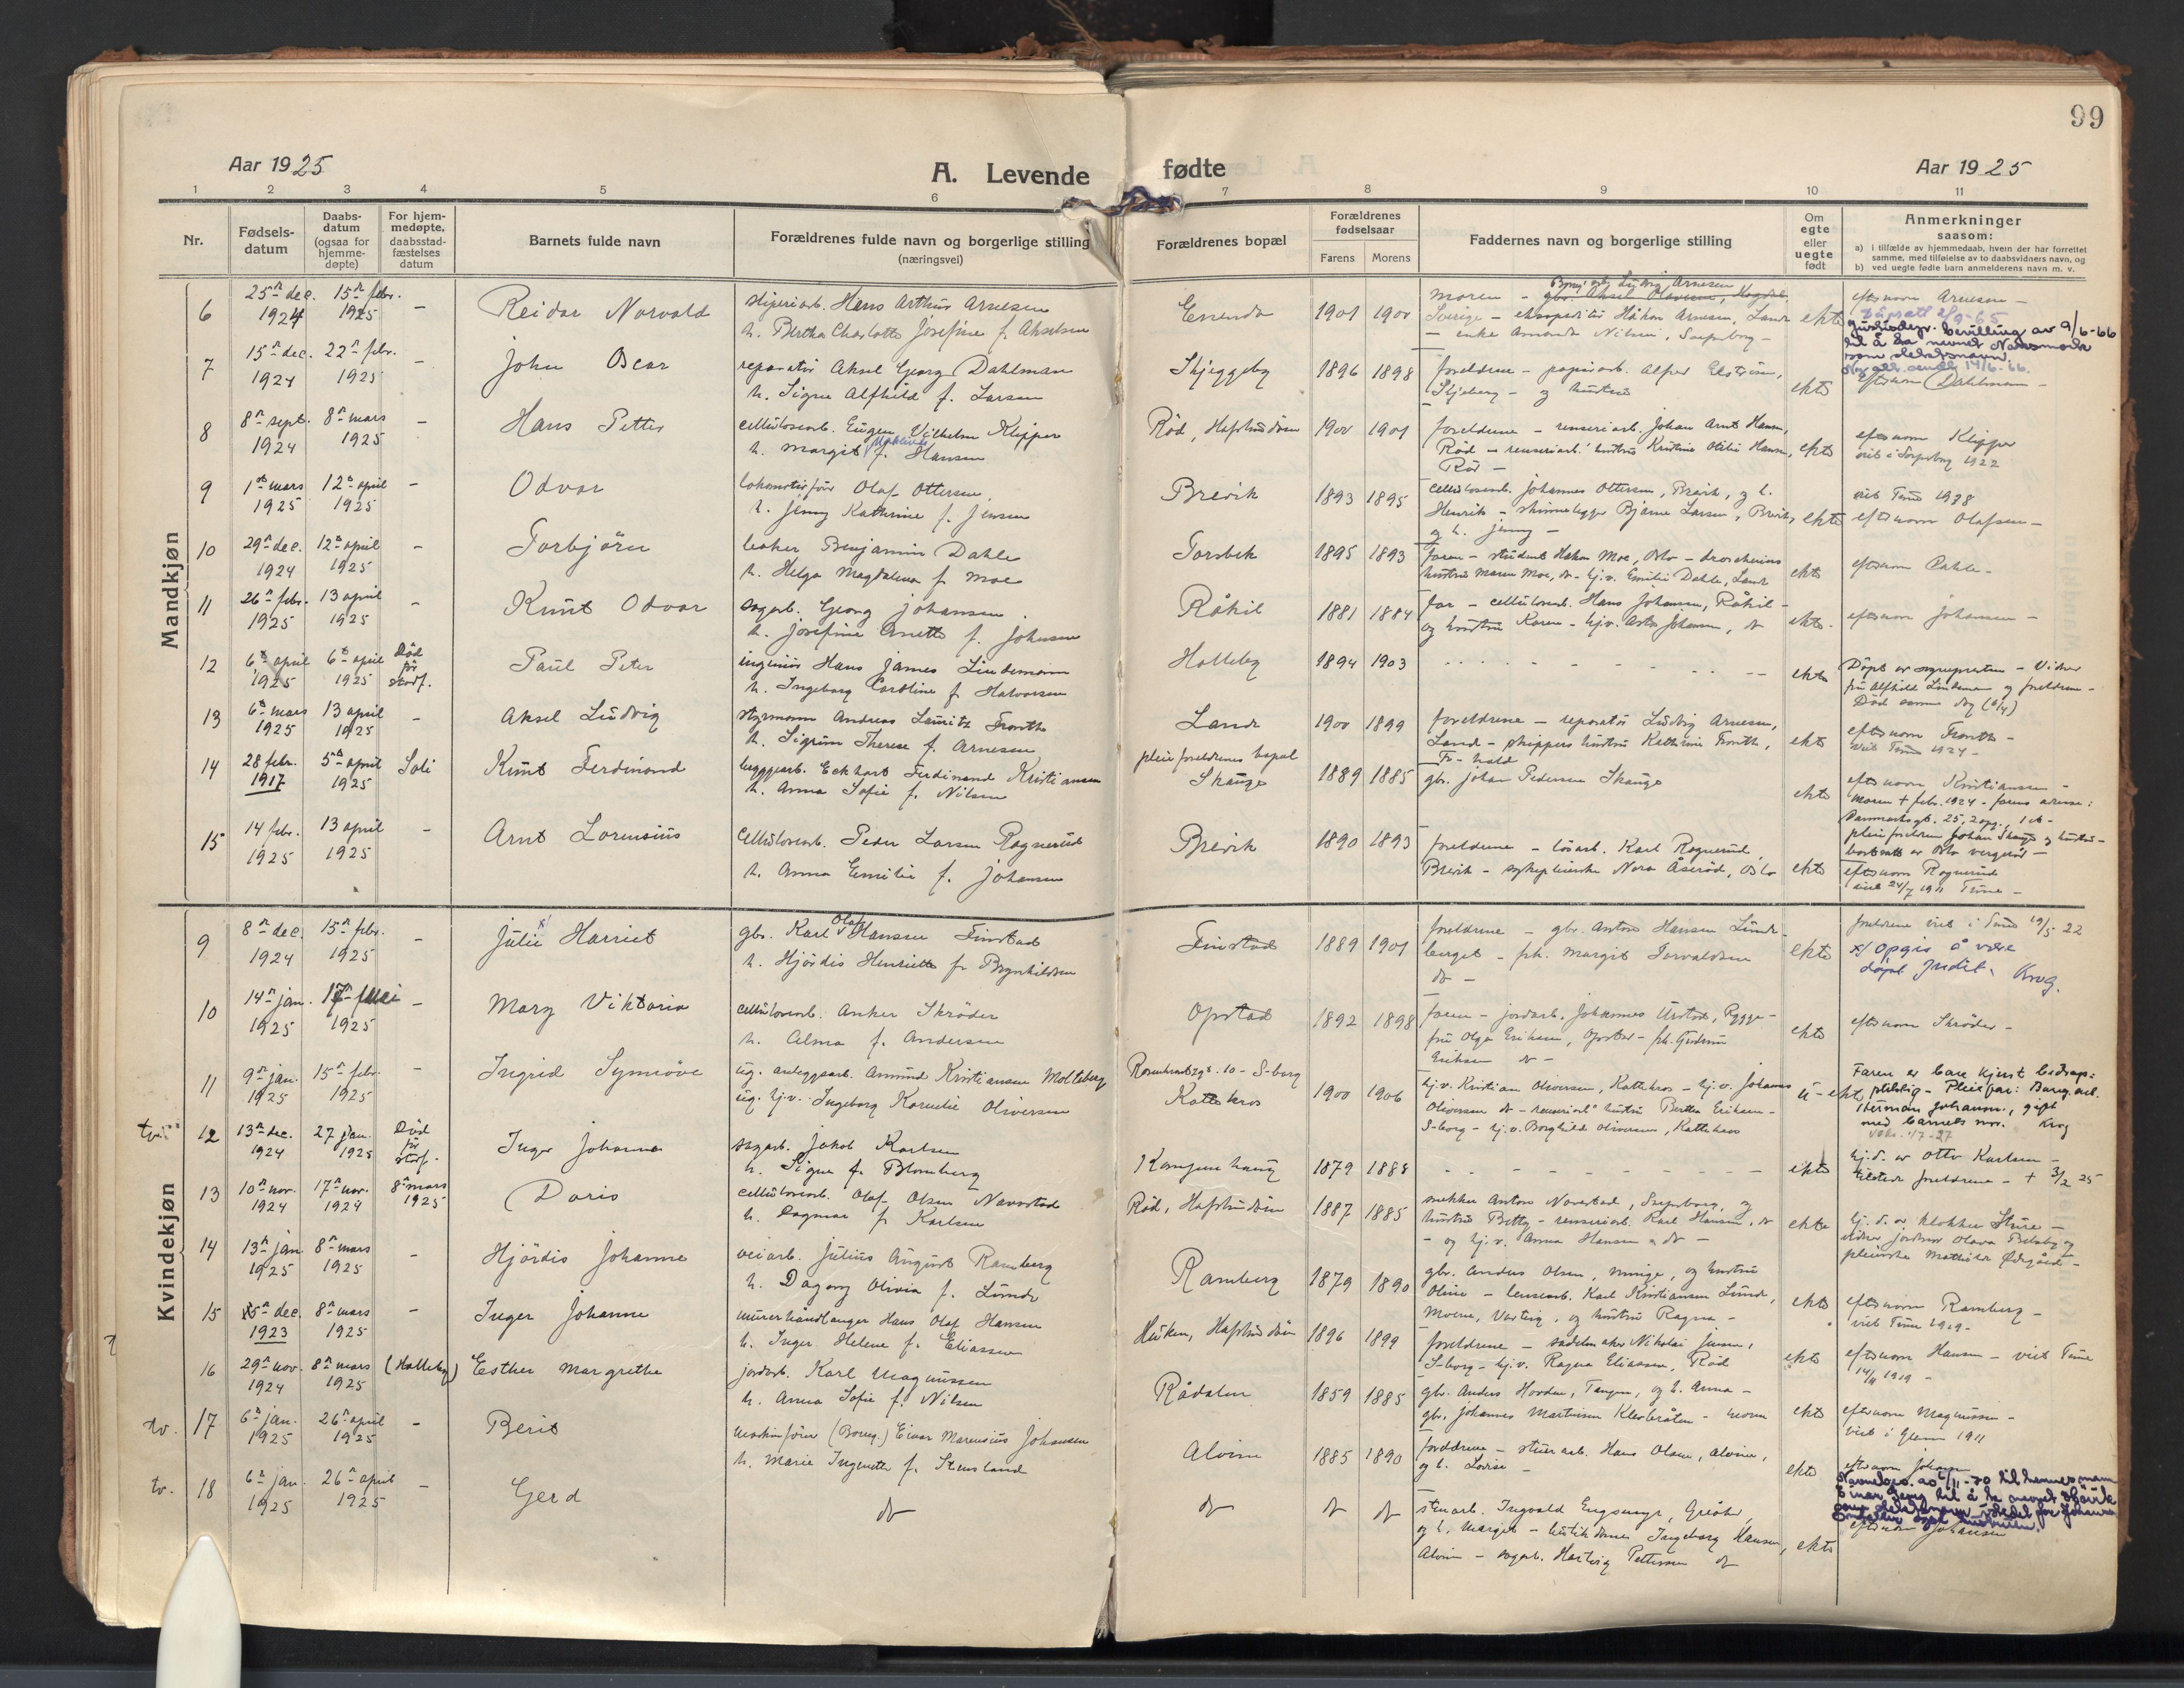 99
Aar 1925
A. Levende fødte
Aar 1925
1 2 3 4 5 6 7 8 9 10 11
Nr.
Fødsels-
datum
Daabs-
datum
(ogsaa for
hjemme-
døpte)
For hjem-
medøpte,
daabsstad-
fæstelses
datum
Barnets fulde navn
Forældrenes fulde navn og borgerlige stilling
(næringsvei)
Forældrenes bopæl
Forældrenes
fødselsaar
Farens Morens
Faddernes navn og borgerlige stilling
Om
egte
eller
uegte
født
Anmerkninger
saasom:
a) i tilfælde av hjemmedaab, hvem der har forrettet
samme, med tilføielse av to daabsvidners navn, og
b) ved uegte fødte barn anmelderens navn m. v.
Mandkjøn
6 25 dec. 1924 15 febr. 1925 - Reidar Norvald
Hans Arthur Arnesen
h. Bertha Charlotte Josefine f. Akselsen
1901 1900
moren -
Sverige - ekspeditør Håkon Arnesen, Lande
- enke Amanda Nilsen, Sarpsborg -
ekte
efternavn Arnesen -
bevilling av 9/6-66
til å ha navnet
som slektsnavn.
7 15 dec. 1924 22 febr. 1925 - John Oscar
reparatør Aksel Georg Dahlman
h. Signe Alfhild f. Larsen
Skjeggeby 1896 1898
foreldrene - papirarb. Alfer Elström,
Skjeberg - og hustru
ekte
efternavn Dahlman -
8 8 sept. 1924 8 mars 1925 - Hans Petter
cellulosearb. Eugen Vilhelm Klipper
h. Margit f. Hansen
Rød, Hafslundsøen 1900 1901
foreldrene - renseriarb. Johan Arnt Hansen,
Rød - renseriarb. hustru Kristine Otilie Hansen,
Rød -
ekte
efternavn Klipper
viet i Sarpsborg 1922
9 1 mars 1925 12 april 1925 - Odvar
lokomotivfører Olaf Ottersen,
h. Jenny Kathrine f. Jensen
Brevik 1893 1895
cellulosearb. Johannes Ottersen, Brevik, og h.
Henrik - skinnelegger Bjarne Larsen, Brevik,
og h. Jenny -
ekte
efternavn Olafsen -
10 29 dec. 1924 12 april 1925 - Torbjörn
baker Benjamin Dahle
h. Helga Magdalena f. Moe
Torsbek 1895 1893
faren - student Håkon Moe, Oslo -
hustru Maren Moe, do - hj.v. Emilie Dahle, Lande
ekte
efternavn Dahle -
11 26 febr. 1925 13 april 1925 - Knut Odvar
sagarb. Georg Johansen
h. Josefine Anette f. Johnsen
Råkil 1881 1884
far - cellulosearb. Hans Johansen, Råkil -
og hustru Karen - hj.v. Asta Johansen, do
ekte
efternavn Johansen -
12 6 april 1925 6 april 1925 Död før stadf. Paul Peter
ingeniör Hans James Lindemann
h. Ingeborg Caroline f. Halvorsen
Holleby 1894 1903
ekte
Döpt av sogneprest - Vidner
fru Alfhild Lindeman og foreldrene -
Död samme dag (6/4)
13 6 mars 1925 13 april 1925 - Aksel Ludvig
styrmann Andreas Lauritz Fronth
h. Sigrun Therese f. Arnesen
Lande 1900 1899
foreldrene - reparatör Ludvig Arnesen,
Lande - skippers hustru Kathrine Fronth,
Fr-hald
ekte
efternavn Fronth -
viet Tune 1924 -
14 28 febr. 1917 5 april 1925 Soli Knut Ferdinand
byggearb. Eckhart Ferdinand Kristiansen
h. Anna Sofie f. Nilsen
pleieforeldrenes bopæl
Skauge 1889 1885
gbr. Johan Pedersen Skauge
ekte
efternavn Kristiansen -
Moren + febr. 1924 - farens adresse:
Danmarksgt. 25, 2 opg., 1 et -
pleieforeldre Johan Skauge og hustru -
bortsatt av Oslo vergeråd -
15 14 febr. 1925 13 april 1925 - Arnt Lorensius
cellulosearb. Peder Larsen Rognerud
h. Anna Emilie f. Johansen
Brevik 1890 1893
foreldrene - lösarb. Karl Rognerud,
Brevik - sykepleierske Nora Åseröd, Oslo
ekte
efternavn Rognerud
viet 24/7 1911 Tune -
Kvindekjøn
9 8 dec. 1924 15 febr. 1925 - Julie x) Harriet
gbr. Karl Olaf Hansen Finstad
h. Hjördis Henriette f. Brynhildsen
Finstad 1889 1901
foreldrene - gbr. Anton Hansen Lunde-
berget - frk. Margit Torvaldsen
do -
ekte
foreldrene viet i Tune 19/5 22
x) Opgis å være
döpt Judit. Krog.
10 14 jan. 1925 1925 - Mary Viktoria
cellulosearb. Anker Skröder
h. Alma f. Andersen
Opstad 1892 1898
faren - jordarb. Johannes Urstad, Rygge -
fru Olga Eriksen, Opstad - frk. Gudrun
Eriksen do -
ekte
efternavn Skröder -
11 9 jan. 1925 15 febr. 1925 - Ingrid Synnöve
ug. anleggsarb. Amund Kristiansen Molleberg
ug. hj.v. Ingeborg Kornelie Oliversen
Rosenkrantzgt. 10 - S-borg
Kattekros 1900 1906
hj.v. Kristian Oliversen, Kattekros - hj.v. Johanne
Oliversen do - renseriarb. hustru Bertha Eriksen -
S-borg - hj.v. Borghild Oliversen, Kattekros
u-ekte
Faren er bare kjent bidrags-
pliktig - Pleiefar: Bureg. arb.
Herman Johansen, gift
med barnets mor. Krog
tv. 12 13 dec. 1924 27 jan. 1925 Död før stadf. Inger Johanne
sagarb. Jakob Karlsen
h. Signe f. Blomberg
Kampenhaug 1879 1888
ekte
hj.d. av Otto Karlsen -
tilstede foreldrene - + 3/2 25
13 10 nov. 1924 17 nov. 1924 8 mars 1925 Doris
cellulosearb. Olaf Olsen Navestad
h. Dagmar f. Karlsen
Rød, Hafslundsøen 1887 1885
snekker Anton Navestad, Sarpsborg, og
hustru Betty - renseriarb. Karl Hansen, do
- og hj.v. Anna Hansen - do -
ekte
hj.d. av klokker Sture -
vidner jordmor Olava Belsby og
pleierske Mathilde Ødegård -
14 13 jan 1925 8 mars 1925 - Hjördis Johanne
veiarb. Julius August Ramberg
h. Dagny Olivia f. Lunde
Ramberg 1879 1890
gbr. Anders Olsen, Minge, og hustru
Oline - lensearb. Karl Kristiansen Lunde,
Moene, Varteig, og hustru Ragna -
ekte
efternavn Ramberg -
viet Tune 1909 -
15 15 dec. 1923 8 mars 1925 - Inger Johanne
murerhåndlanger Hans Olaf Hansen
h. Inger Helene f. Eliassen
Hafslundsøen 1896 1899
foreldrene - sadelmaker Nikolai Jensen,
S-borg - hj.v. Ragna Eliassen, Rød
ekte
efternavn Hansen - viet Tune
1919 -
16 29 nov. 1924 8 mars 1925 (Holleby) Esther Margrethe
jordarb. Karl Magnussen
h. Anna Sofie f. Nilsen
Rådalen 1859 1885
gbr. Anders Hovden, Tangen, og h. Anna -
gbr. Johannes Martinsen - moren
ekte
efternavn Magnussen -
viet i Glemm 1911
tv. 17 6 jan. 1925 26 april 1925 - Berit
maskinfører (Borreg.) Einar Marensius Johansen
h. Marie Ingmette f. Stensland
Alvim 1885 1890
foreldrene - stuerarb. Hans Olsen, Alvim,
og h. Lovise -
ekte
efternavn Johansen
til hennes mann
Einar Berg til å ta navnet
tv. 18 6 jan. 1925 26 april 1925 - Gerd
do
do do do
stenarb. Ingvald Engsmyr, Greåker,
og h. Margit - butikdame Ingeborg Hansen,
Alvim - sagarb. Hartvig Pettersen do
ekte
efternavn Johansen